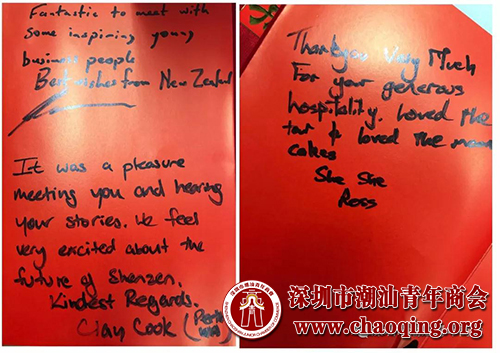 Fantastic to meet with
some inspiring young
business people
Best wishes from New Zealand
It was a pleasure
meeting you and hearing
your stories. We feel
very excited about the
future of Shenzen.
Kindest Regards.
Clay Cook (Perth
WA)
Thankyou Very Much
For your generous
hospitality. Loved the
tour & loved the moon
cakes
She She
Ross
深圳市潮汕青年商会
www.chaoqing.org